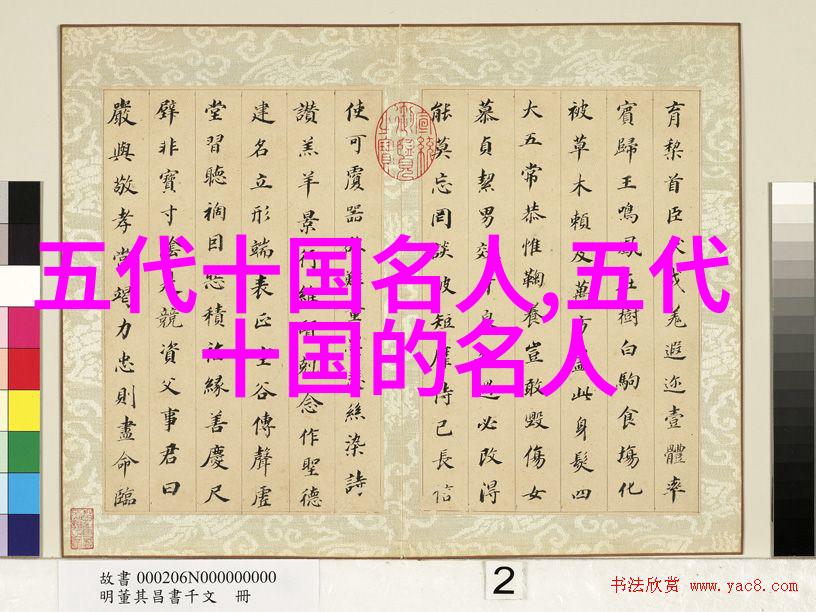 五代十国名人,五代
十国的名人
育棃首臣伏戎羌遐迩壹體率
賓歸王鳴鳳在樹白駒食場化
被草木賴及萬方蓋此身髮四
大五常恭惟鞠養豈敢毀傷女
慕貞絜男效才良過必改得
能莫忘罔談彼短靡恃己長信
使可覆器難量絲染詩
讚羔羊景行維賢刻念作聖德
建名立形端表正空谷傳聲虛
堂習聽禍因惡積福緣善慶尺
璧非寶寸陰是競資父事君曰
嚴與敬孝當竭力忠則盡命臨
故書 000206N000000000
明董其昌書千文 冊
2
书法欣赏 www.yac8.com